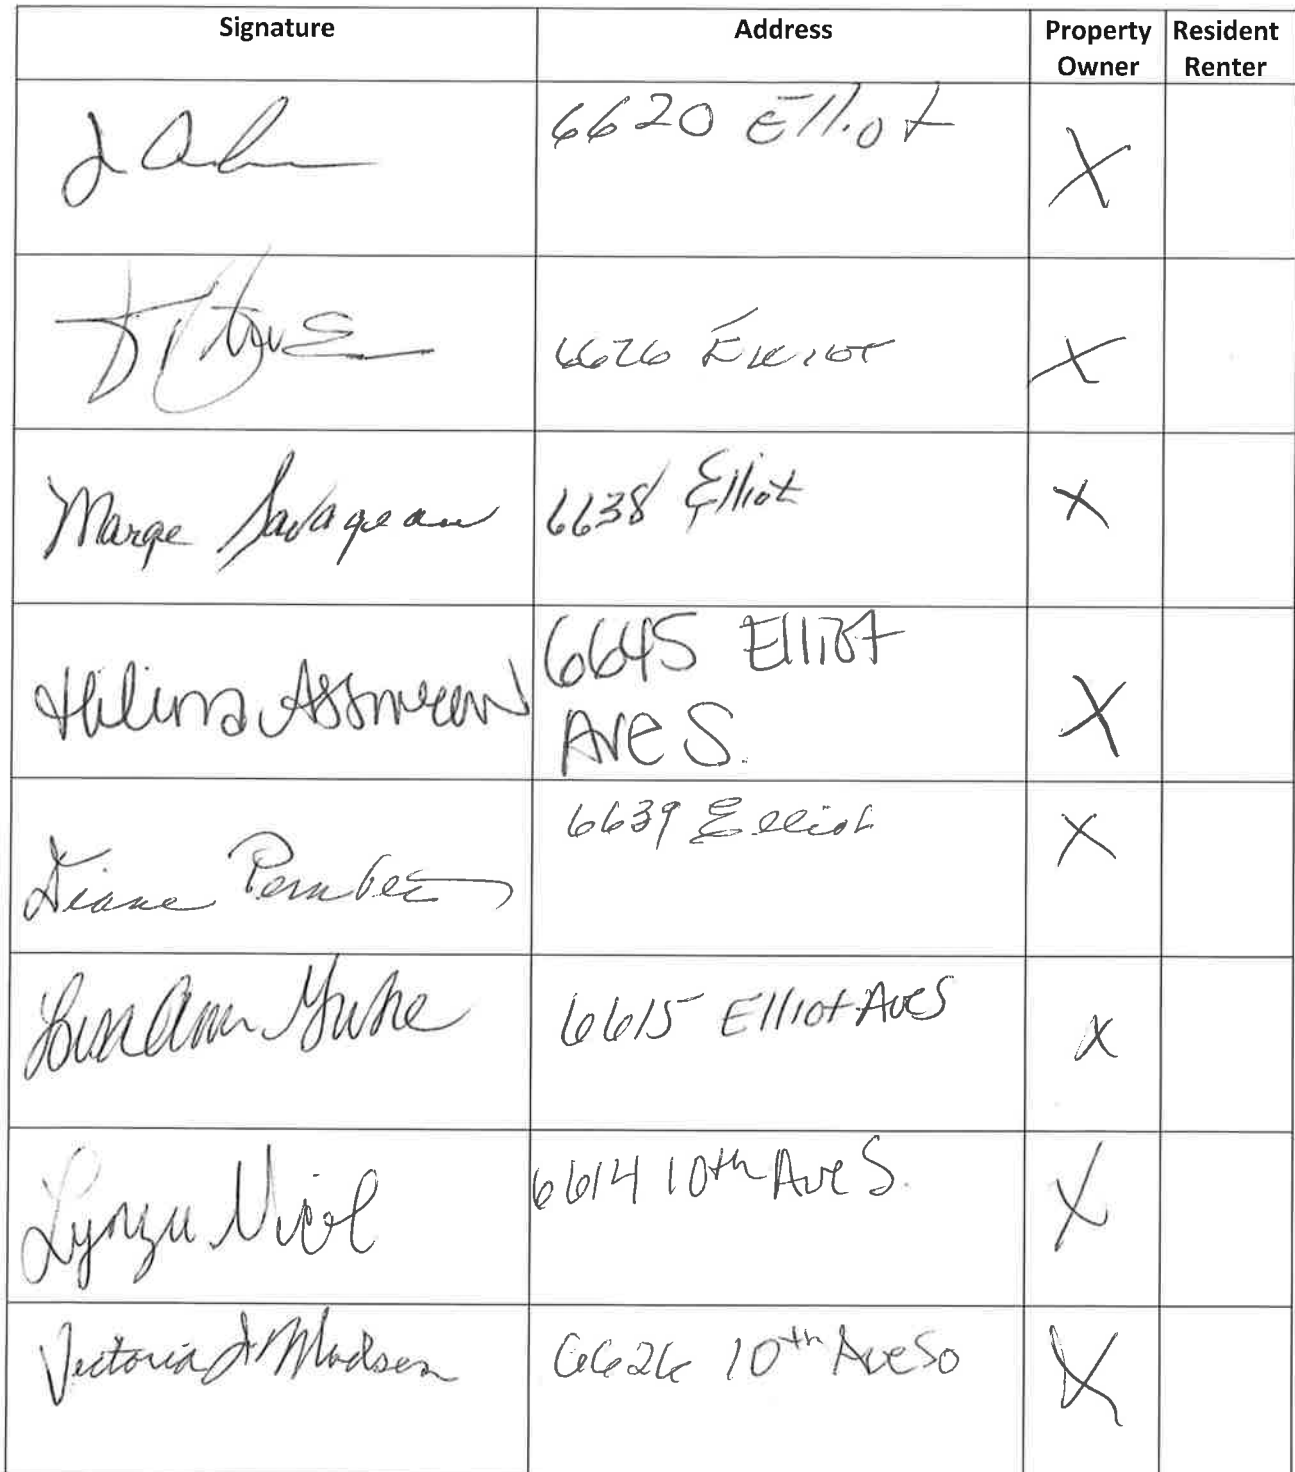 Signature Address Property Owner Resident Renter
6620 Elliot X
6626 Elliot X
Marge Savageau 6638 Elliot X
6645 Elliot
Ave S. X
Diane 6639 Elliot X
6615 Elliot Ave S X
Nicol 6614 10th Ave S. X
Victoria J Madsen 6626 10th Ave So X